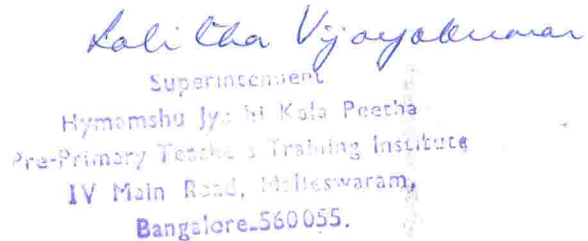 Lalitha Vijayakumar
Superintendent
Hymamshu Jyothi Kala Peetha
Pre-Primary Teachers Training Institute
IV Main Road, Malleswaram,
Bangalore-560055.